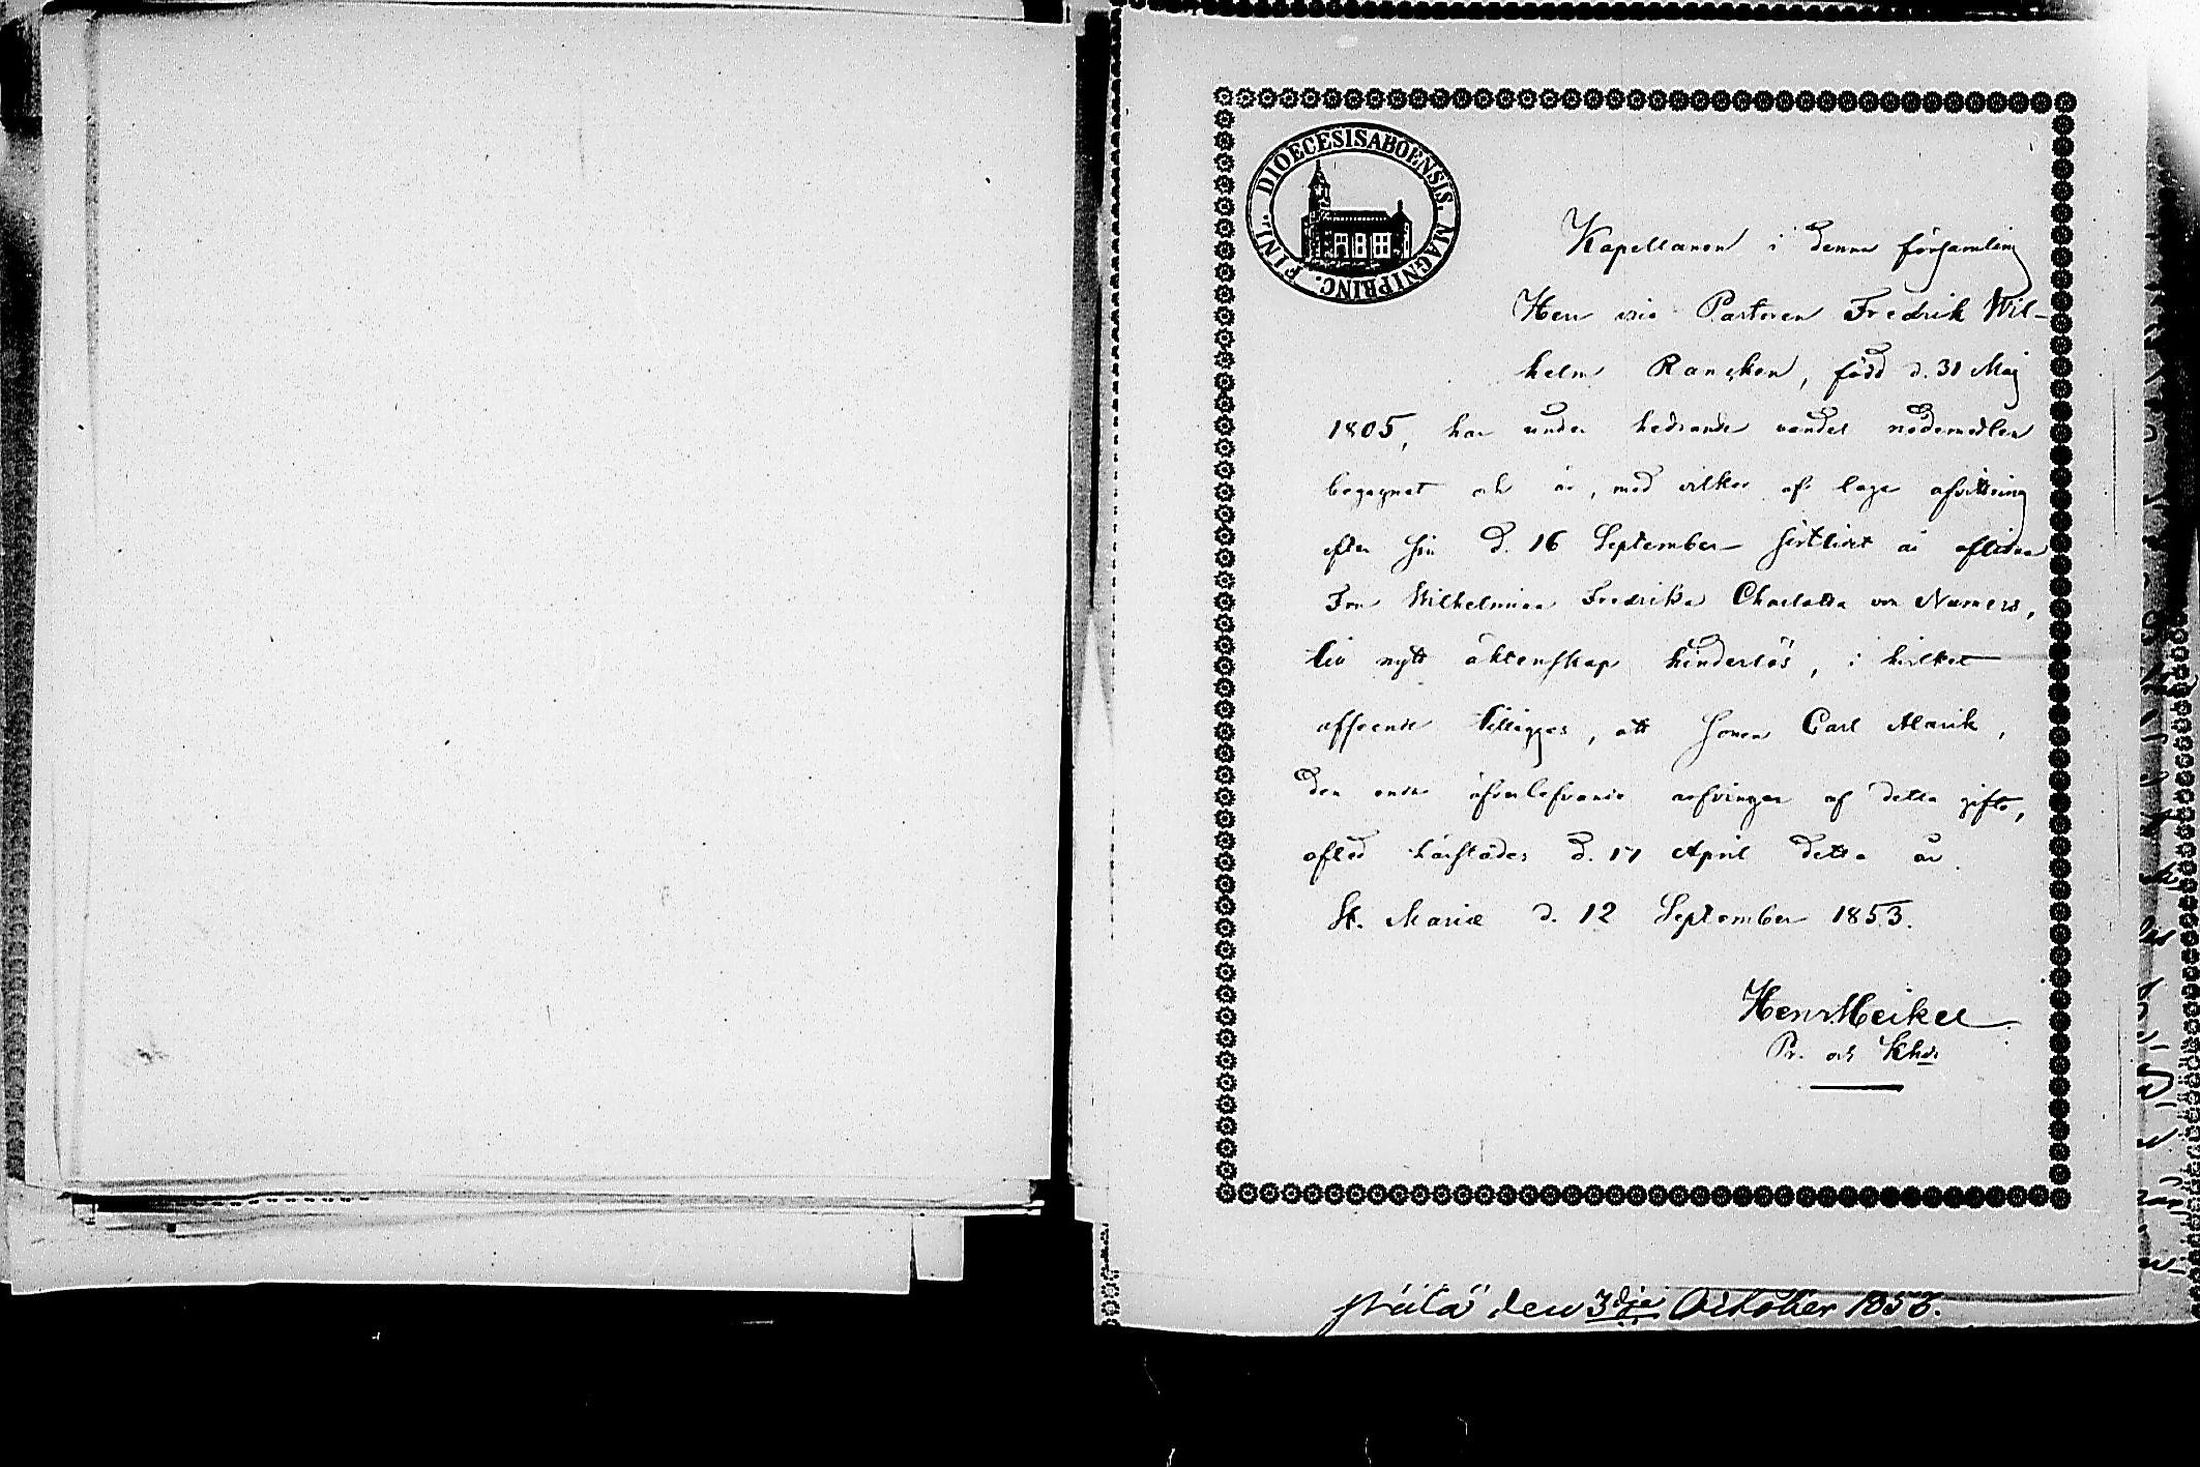 DIOECESIS ABOENSIS. MAGNI PRINC. FINL.
Kapellanen i denna församling
Herr vice Pastoren Fredrik Wil-
helm Rancken, född d. 31 Maj
1805, har under hedrande vandel nådemedlen
begagnat och är, med vilkor af laga afvittring
efter sin d. 16 September sistlidet år aflidna
Fru Wilhelmina Fredrika Charlotta von Numers,
till nytt äktenskap hinderlös, i hvilket
afseende tillägges, att sonen Carl Alarik,
den enda öfverlefvande arfvingen af detta gifte,
afled härstädes d. 17 April detta år.
St. Mariæ d. 12 September 1853.
Henr. Heikel
Pr. och Khde
den 3dje October 1853.